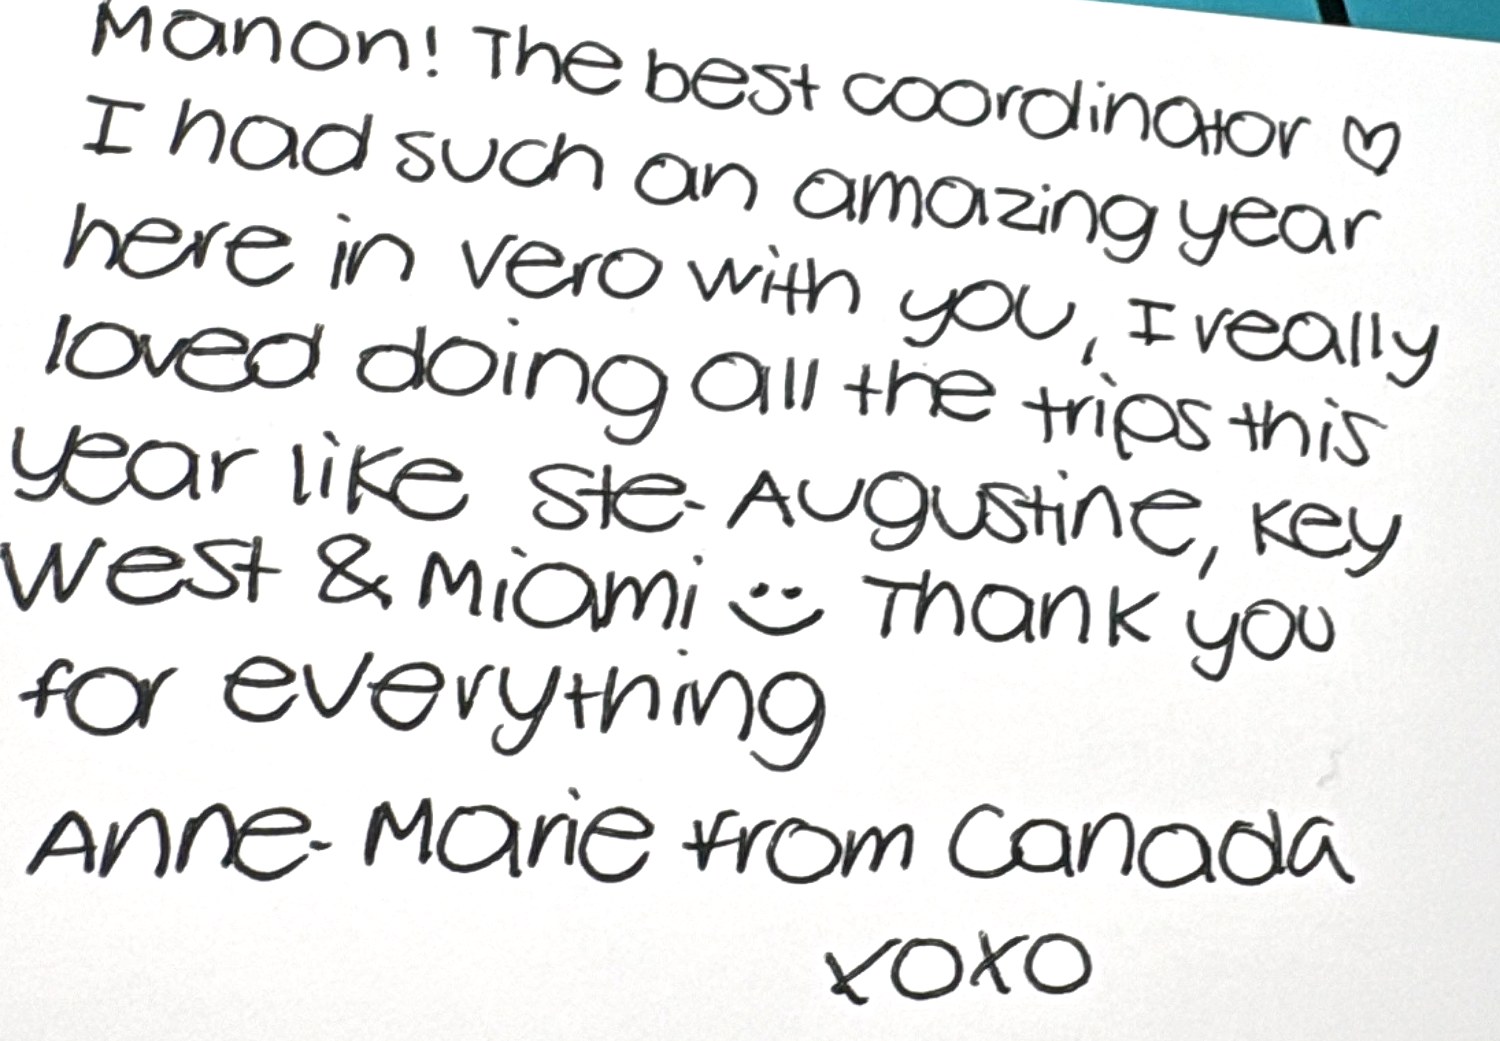 Manon! The best coordinator ♡
I had such an amazing year
here in vero with you, I really
loved doing all the trips this
year like Ste-Augustine, Key
West & Miami :) Thank you
for everything
Anne-Marie from Canada
xoxo